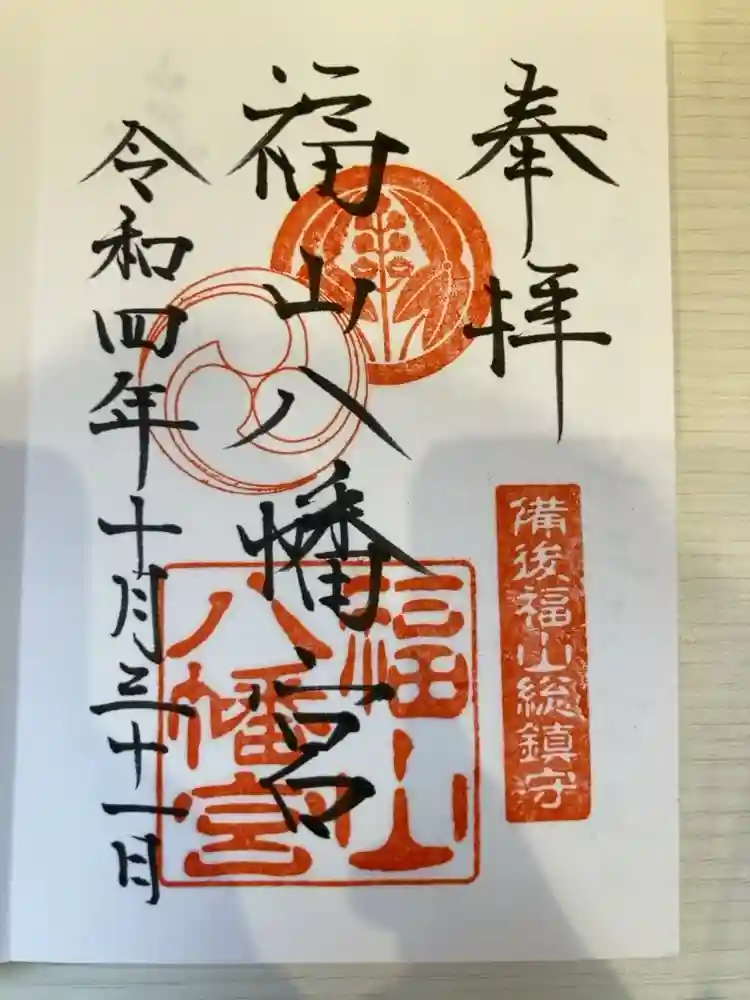 奉拝
備後福山総鎮守
福山八幡宮
福山
八幡宮
令和四年十月三十一日